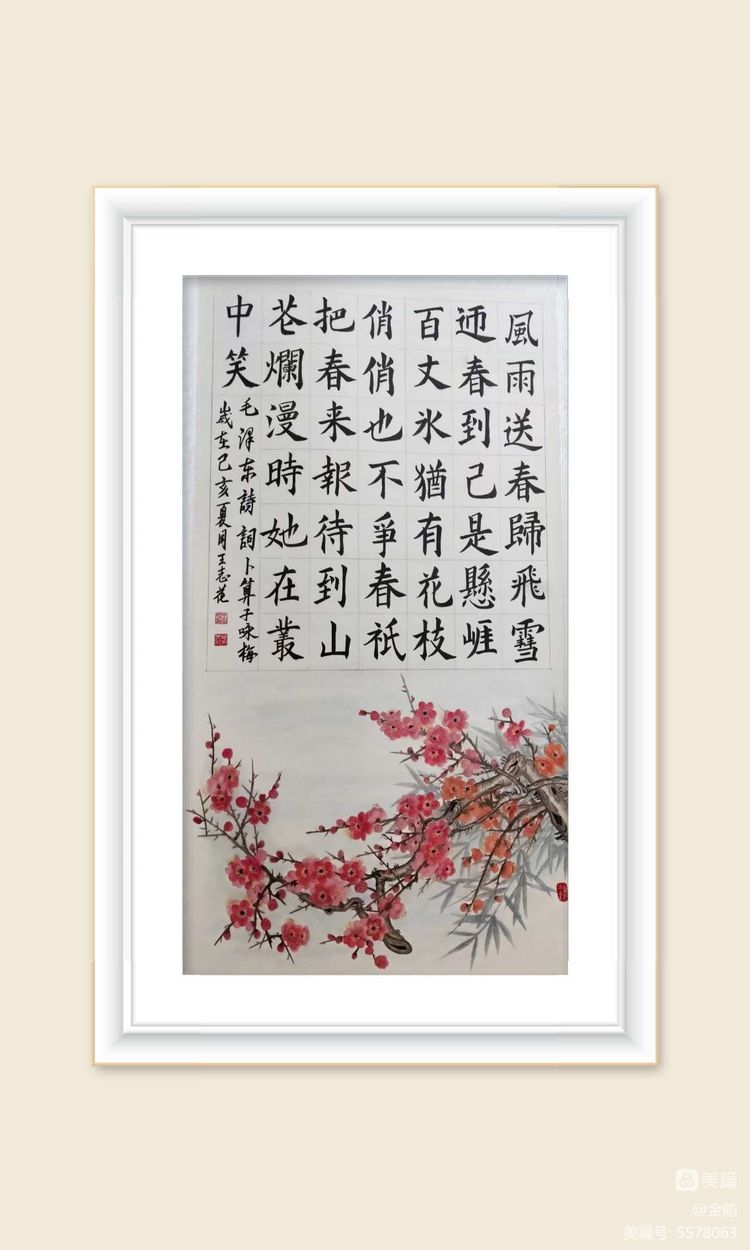 風雨送春歸飛雪
迎春到己是懸崕
百丈氷猶有花枝
俏俏也不爭春祇
把春来報待到山
花爛漫時她在叢
中笑
毛泽东詩詞卜算子咏梅
歲在己亥夏月王志花
美篇
@金舫
美篇号: 5578063